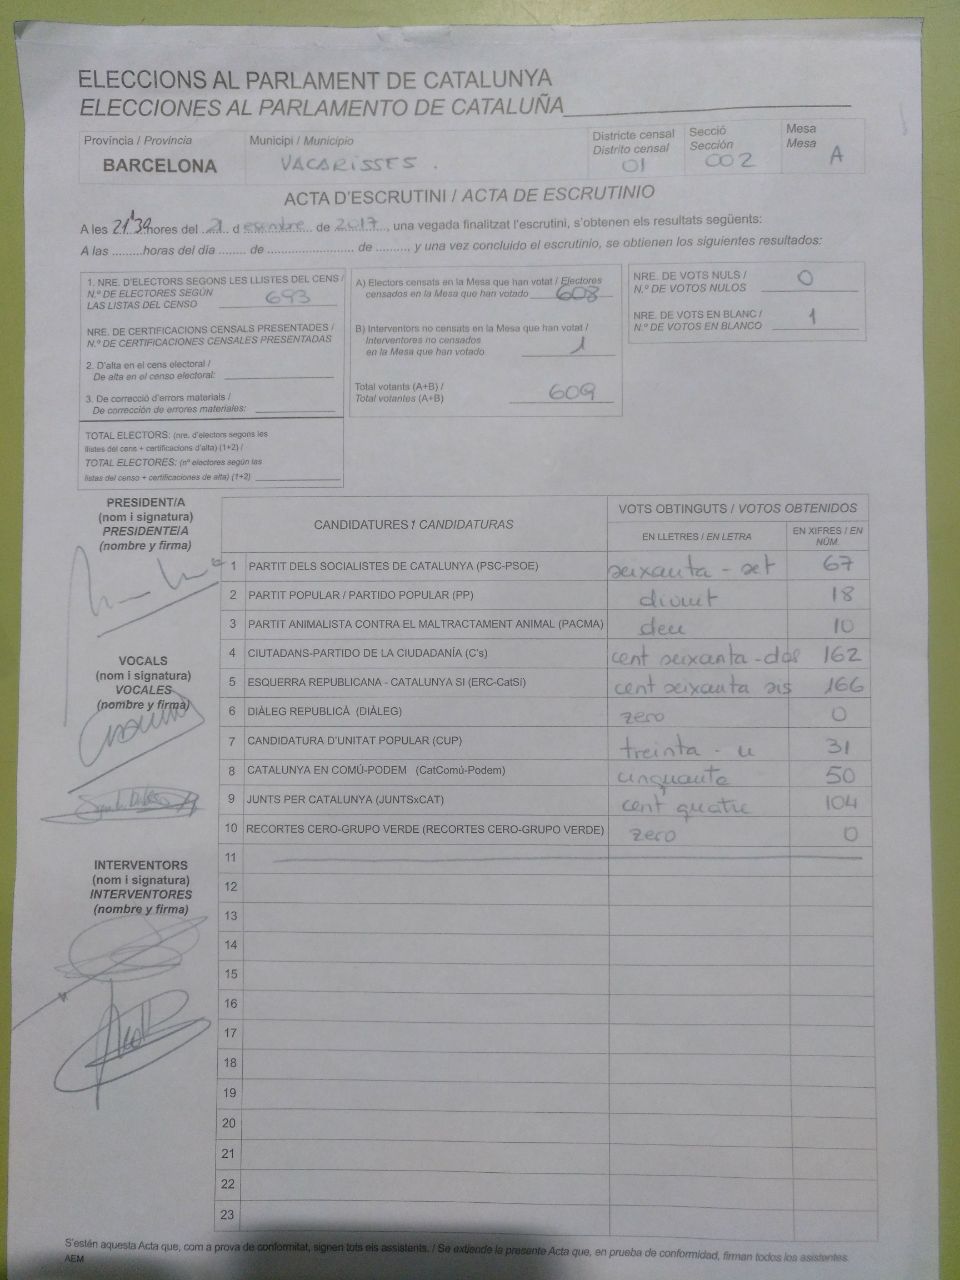 ELECCIONS AL PARLAMENT DE CATALUNYA
ELECCIONES AL PARLAMENTO DE CATALUÑA
Província / Provincia
BARCELONA
Municipi / Municipio
VACARISSES.
Districte censal
Distrito censal
01
Secció
Sección
002
Mesa
Mesa
A
ACTA D'ESCRUTINI / ACTA DE ESCRUTINIO
A les 21'39 hores del 21 d desembre de 2017, una vegada finalitzat l'escrutini, s'obtenen els resultats següents:
A las .........horas del día ....... de ........................ de .......... y una vez concluido el escrutinio, se obtienen los siguientes resultados:
1. NRE. D'ELECTORS SEGONS LES LLISTES DEL CENS /
N.º DE ELECTORES SEGÚN
LAS LISTAS DEL CENSO 693
NRE. DE CERTIFICACIONS CENSALS PRESENTADES /
N.º DE CERTIFICACIONES CENSALES PRESENTADAS
2. D'alta en el cens electoral /
De alta en el censo electoral:
3. De correcció d'errors materials /
De corrección de errores materiales:
TOTAL ELECTORS: (nre. d'electors segons les
llistes del cens + certificacions d'alta) (1+2) /
TOTAL ELECTORES: (nº electores según las
listas del censo + certificaciones de alta) (1+2)
A) Electors censats en la Mesa que han votat / Electores
censados en la Mesa que han votado 608
B) Interventors no censats en la Mesa que han votat /
Interventores no censados
en la Mesa que han votado 1
Total votants (A+B) /
Total votantes (A+B) 609
NRE. DE VOTS NULS /
N.º DE VOTOS NULOS 0
NRE. DE VOTS EN BLANC /
N.º DE VOTOS EN BLANCO 1
PRESIDENT/A
(nom i signatura)
PRESIDENTE/A
(nombre y firma)
VOCALS
(nom i signatura)
VOCALES
(nombre y firma)
INTERVENTORS
(nom i signatura)
INTERVENTORES
(nombre y firma)
CANDIDATURES / CANDIDATURAS
VOTS OBTINGUTS / VOTOS OBTENIDOS
EN LLETRES / EN LETRA
EN XIFRES / EN
NÚM.
1 PARTIT DELS SOCIALISTES DE CATALUNYA (PSC-PSOE) seixanta - set 67
2 PARTIT POPULAR / PARTIDO POPULAR (PP) divuit 18
3 PARTIT ANIMALISTA CONTRA EL MALTRACTAMENT ANIMAL (PACMA) deu 10
4 CIUTADANS-PARTIDO DE LA CIUDADANÍA (C's) cent seixanta - dos 162
5 ESQUERRA REPUBLICANA - CATALUNYA SI (ERC-CatSI) cent seixanta sis 166
6 DIÀLEG REPUBLICÀ (DIÀLEG) zero 0
7 CANDIDATURA D'UNITAT POPULAR (CUP) treinta - u 31
8 CATALUNYA EN COMÚ-PODEM (CatComú-Podem) cinquanta 50
9 JUNTS PER CATALUNYA (JUNTSxCAT) cent quatre 104
10 RECORTES CERO-GRUPO VERDE (RECORTES CERO-GRUPO VERDE) zero 0
11
12
13
14
15
16
17
18
19
20
21
22
23
S'estén aquesta Acta que, com a prova de conformitat, signen tots els assistents. / Se extiende la presente Acta que, en prueba de conformidad, firman todos los asistentes.
AEM